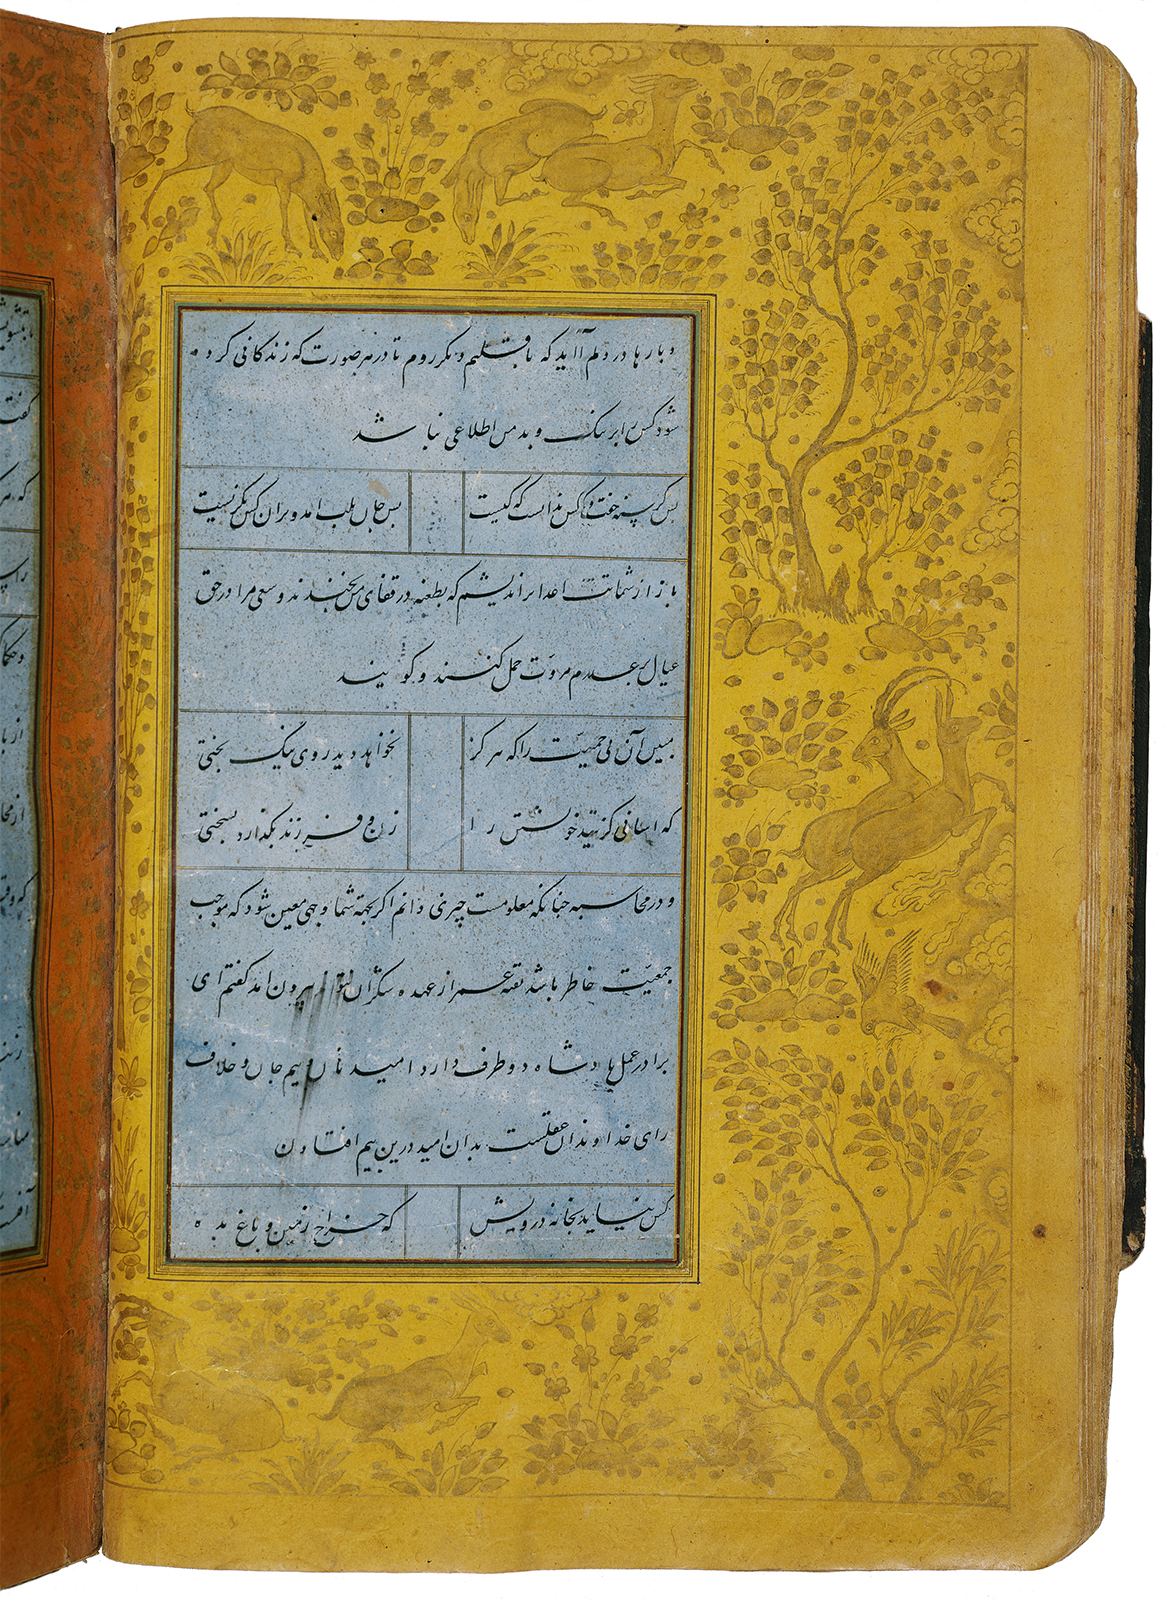 و بارها در دلم آید که باقلیم دیگر روم تا در هر صورت که زندگانی کرده
شود کسی را بر نیک و بد من اطلاعی نباشد
بس گرسنه خفت و کس ندانست که کیست بس جان بلب آمد و بر آن کس نگریست
باز از شماتت اعدا براندیشم که بطعنه در قفای من بخندند و سعی مرا در حق
عیال بر عدم مروّت حمل کنند و گویند
مبین آن بی حمیّت را که هرگز نخواهد دید روی نیک بختی
که آسانی گزیند خویشتن را زن و فرزند بگذارد بسختی
و در محاسبه چنانکه معلومست چیزی دانم اگر بجهة شما وجهی معین شود که موجب
جمعیّت خاطر باشد بقیه عمر از عهده شکر آن بیرون آمدن گفتم ای
برادر عمل پادشاه دو طرف دارد امید نان و بیم جان و خلاف
رای خداوندان عقلست بدان امید درین بیم افتادن
کس نیاید بخانه درویش که خراج زمین و باغ بده